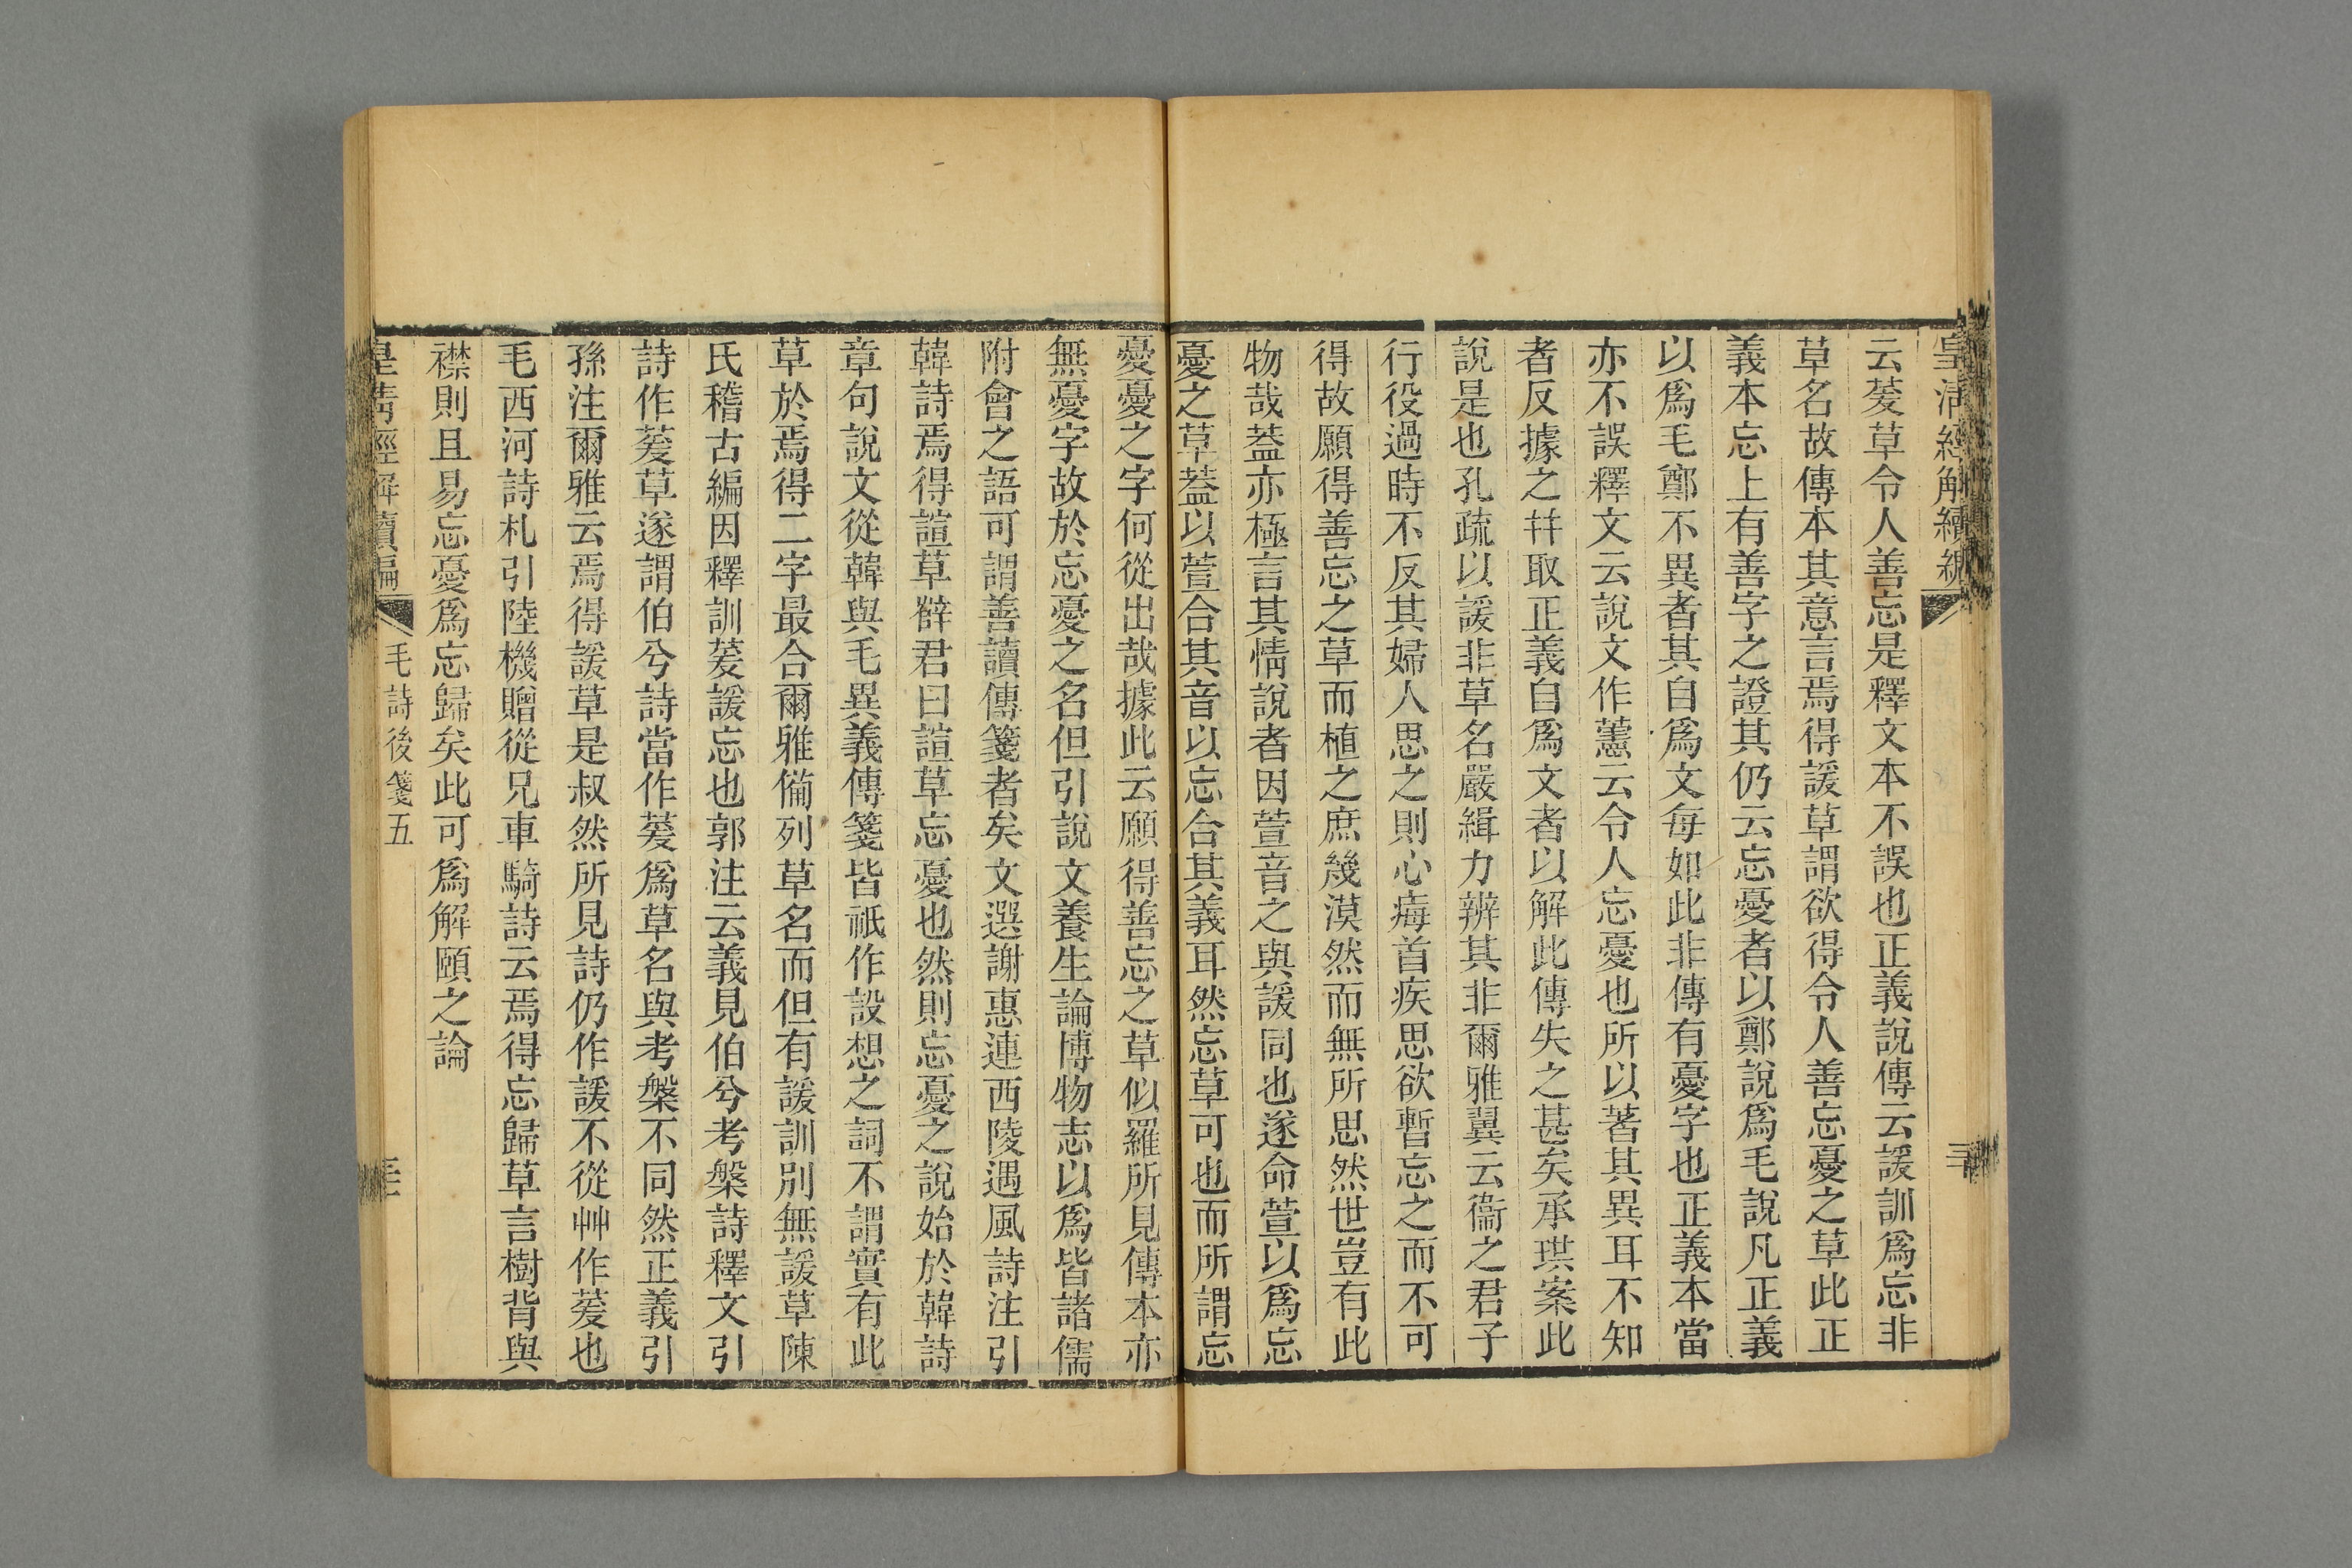 皇淸經解續編
云萲草令人善忘是釋文本不誤也正義說傳云諼訓爲忘非
草名故傳本其意言焉得諼草謂欲得令人善忘憂之草此正
義本忘上有善字之證其仍云忘憂者以鄭說爲毛說凡正義
以爲毛鄭不異者其自爲文每如此非傳有憂字也正義本當
亦不誤釋文云說文作藼云令人忘憂也所以著其異耳不知
者反據之幷取正義自爲文者以解此傳失之甚矣承珙案此
說是也孔疏以諼非草名嚴緝力辨其非爾雅翼云衞之君子
行役過時不反其婦人思之則心痗首疾思欲暫忘之而不可
得故願得善忘之草而植之庶幾漠然而無所思然世豈有此
物哉葢亦極言其情說者因萱音之與諼同也遂命萱以爲忘
憂之草葢以萱合其音以忘合其義耳然忘草可也而所謂忘
憂憂之字何從出哉據此云願得善忘之草似羅所見傳本亦
無憂字故於忘憂之名但引說文養生論博物志以爲皆諸儒
附會之語可謂善讀傳箋者矣文選謝惠連西陵遇風詩注引
韓詩焉得諠草薛君曰諠草忘憂也然則忘憂之說始於韓詩
章句說文從韓與毛異義傳箋皆祇作設想之詞不謂實有此
草於焉得二字最合爾雅備列草名而但有諼訓別無諼草陳
氏稽古編因釋訓萲諼忘也郭注云義見伯兮考槃詩釋文引
詩作萲草遂謂伯兮詩當作萲爲草名與考槃不同然正義引
孫注爾雅云焉得諼草是叔然所見詩仍作諼不從艸作萲也
毛西河詩札引陸機贈從兄車騎詩云焉得忘歸草言樹背與
襟則且易忘憂爲忘歸矣此可爲解頤之論
皇淸經解續編
毛詩後箋五